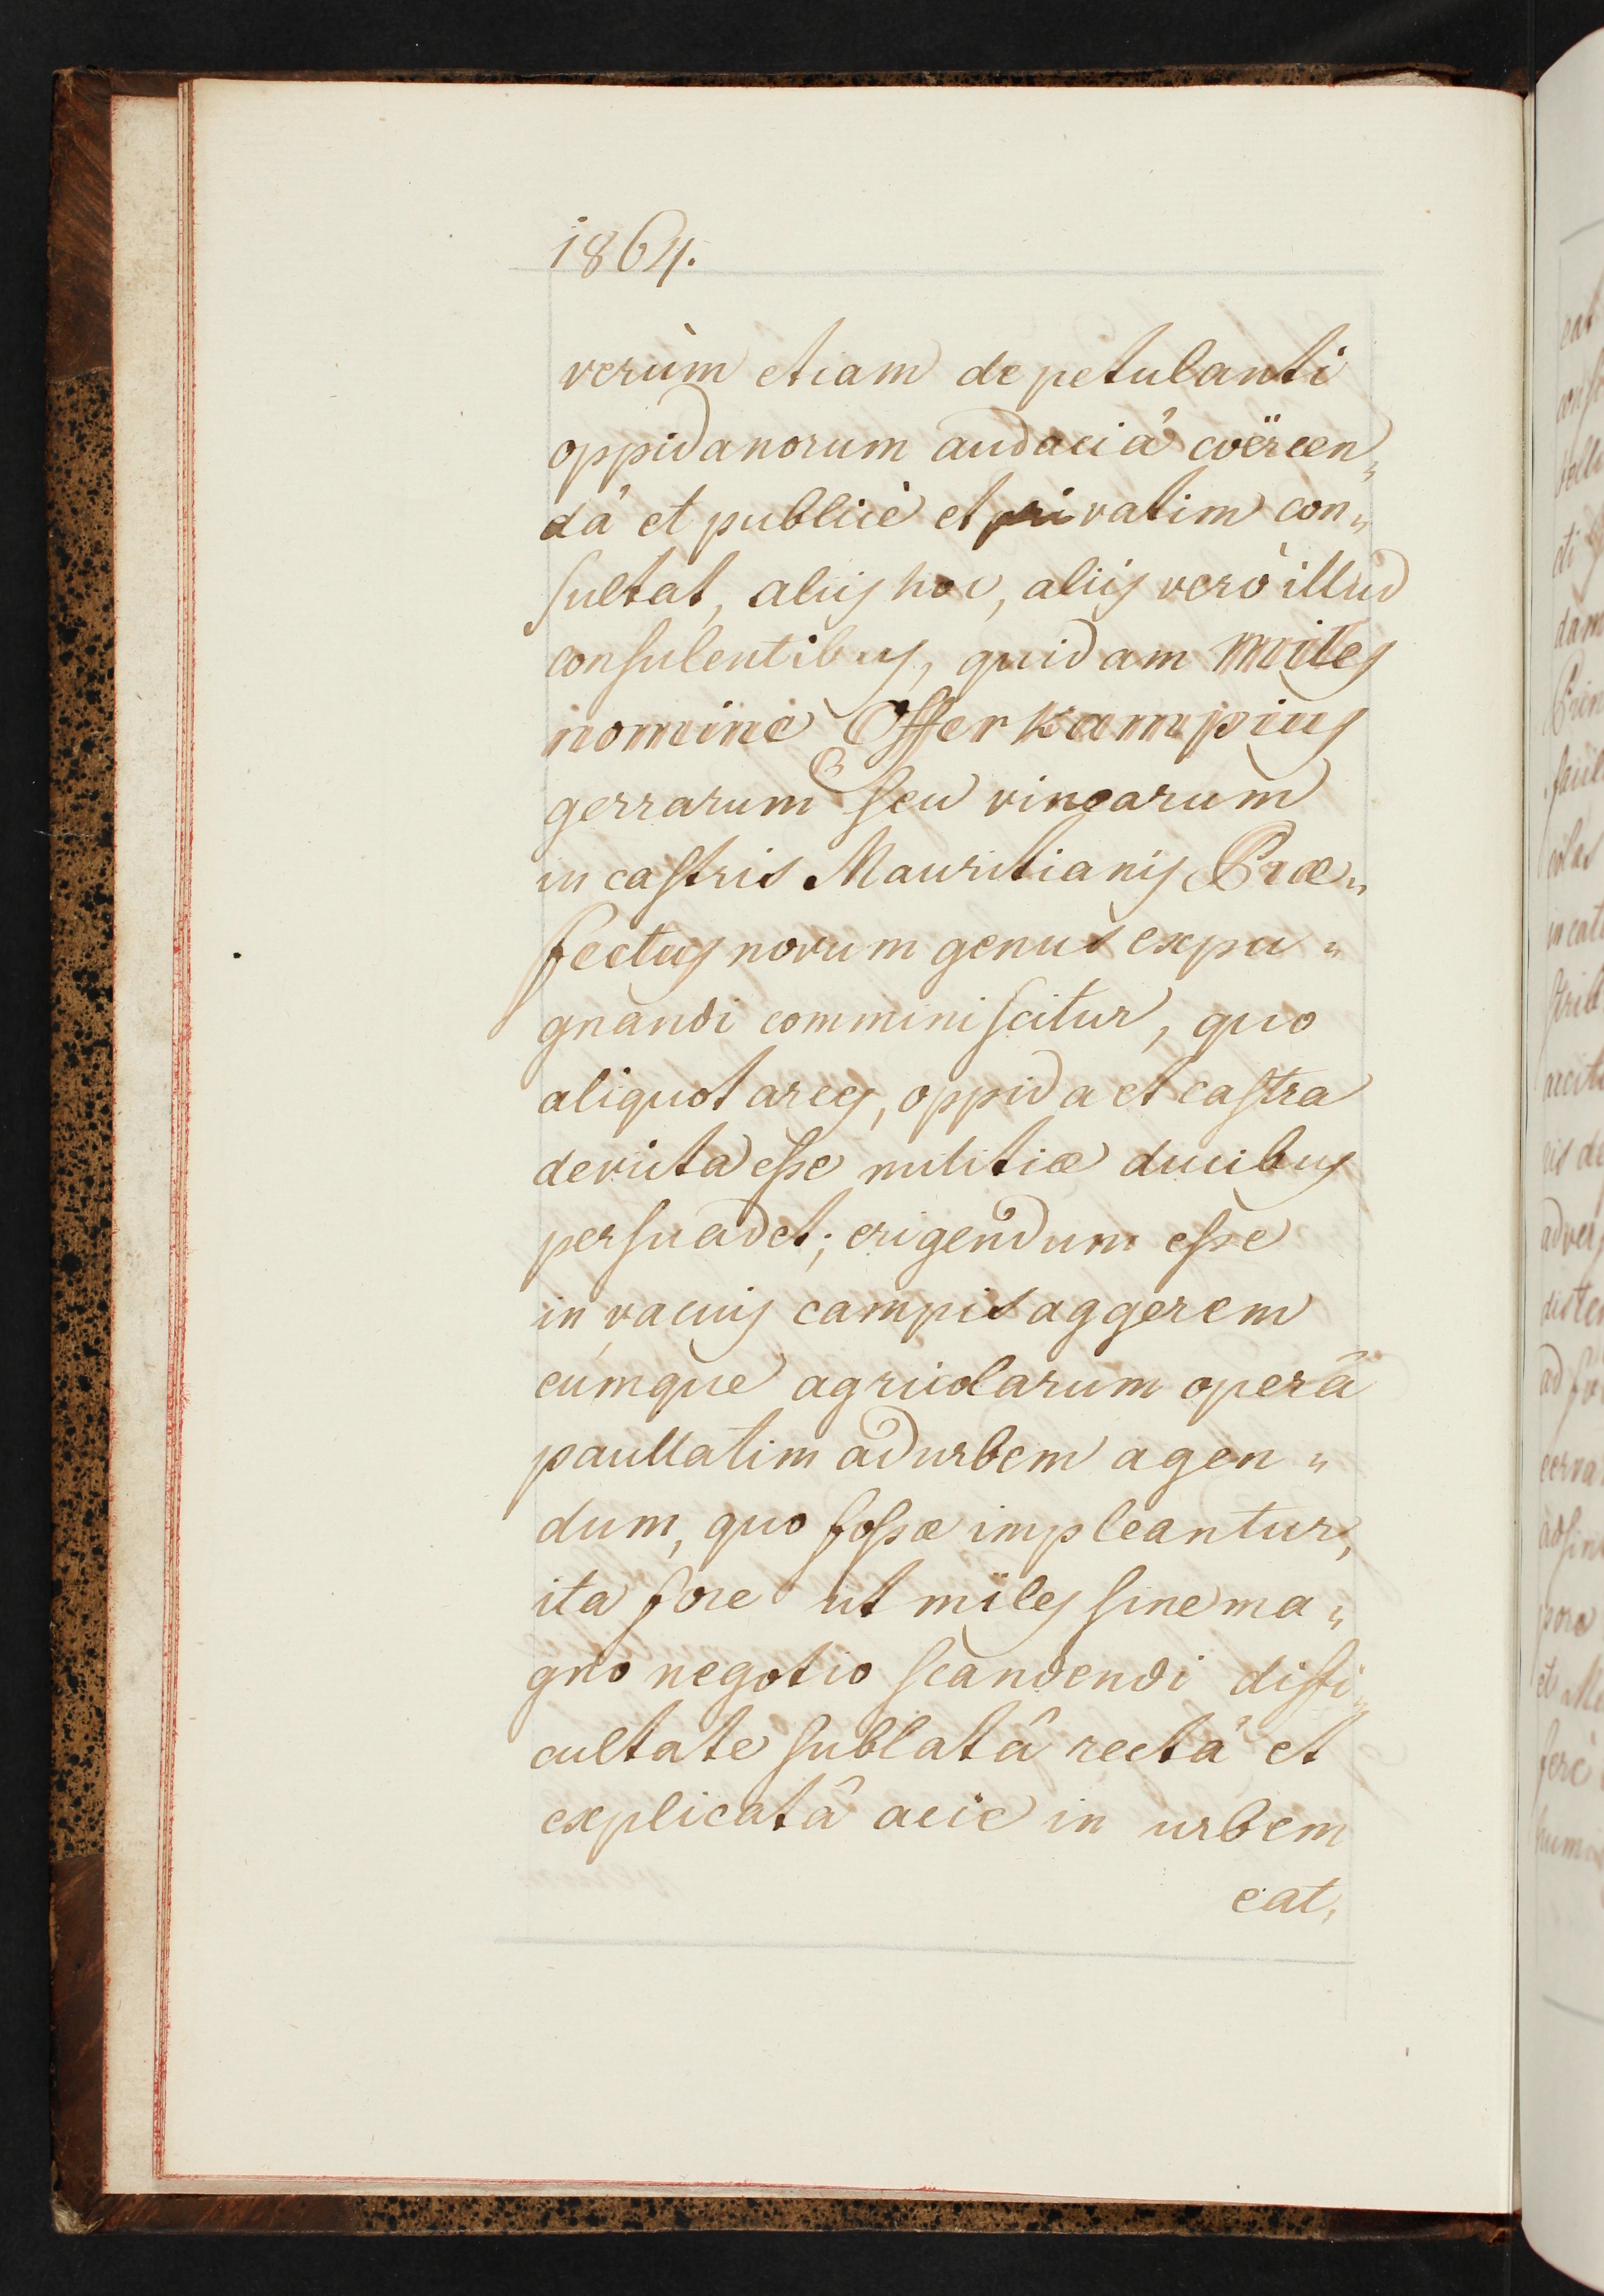 1864.
verùm etiam de petulanti
oppidanorum audaciâ coërcen„
dâ et publicè et privatim con„
sultat, aliis hoc, aliis verò illud
consulentibus, quidam miles
nomine Offerkampius
gerrarum seu vinearum
in castris Mauritianis Præ„
fectus novum genus expu„
gnandi comminiscitur, quo
aliquot arces, oppida et castra
devicta esse militiæ ducibus
persuadet; erigendum esse
in vacuis campis aggerem
eúmque agricolarum operâ
paullatim ad urbem agen„
dum, quo fossæ impleantur,
ita fore ut miles sine ma„
gno negotio scandendi diffi„
cultate sublatâ rectâ et
explicatâ acie in urbem
eat,